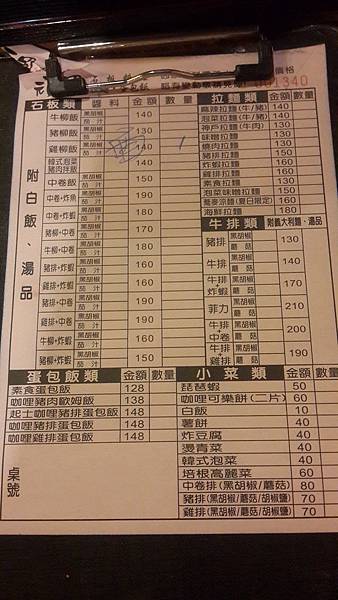 價格
001340
石板類 醬料 金額 數量
牛柳飯 黑胡椒 茄汁 140
豬柳飯 黑胡椒 茄汁 130
雞柳飯 黑胡椒 茄汁 140 1
韓式泡菜豬肉拌飯 140
中卷飯 黑胡椒 茄汁 150
中卷+炸魚 黑胡椒 茄汁 190
牛柳+中卷 黑胡椒 茄汁 180
豬柳+中卷 黑胡椒 茄汁 170
牛柳+ 黑胡椒 茄汁 180
豬排+炸蝦 黑胡椒 茄汁 160
豬排+中卷 黑胡椒 茄汁 190
雞排+炸蝦 黑胡椒 茄汁 160
雞排+中卷 黑胡椒 茄汁 190
牛柳+炸蝦 黑胡椒 茄汁 160
豬柳+炸蝦 黑胡椒 茄汁 150
附白飯、湯品
拉麵類 金額 數量
麻辣拉麵(牛/豬) 140
泡菜拉麵(牛/豬) 140
神戶拉麵(牛肉) 130
味噌拉麵 130
燒肉拉麵 130
豬排拉麵 150
炸蝦拉麵 160
雞排拉麵 160
素食拉麵 130
泡菜味噌拉麵 150
蕎麥涼麵(夏日限定) 160
海鮮拉麵 180
牛排類 附義大利麵、湯品
豬排 黑胡椒 蘑菇 130
牛排 黑胡椒 蘑菇 140
牛排+炸蝦 黑胡椒 蘑菇 170
菲力 黑胡椒 蘑菇 210
牛排+中卷 黑胡椒 蘑菇 200
牛排+雞排 黑胡椒 蘑菇 190
蛋包飯類 金額 數量
素食蛋包飯 128
咖哩豬肉歐姆飯 138
起士咖哩豬排蛋包飯 148
咖哩豬排蛋包飯 148
咖哩雞排蛋包飯 148
桌號
小菜類 金額 數量
琵琶蝦 50
咖哩可樂餅(二片) 60
白飯 10
薯餅 40
炸豆腐 40
燙青菜 40
韓式泡菜 40
培根高麗菜 60
中卷排(黑胡椒/蘑菇) 80
豬排(黑胡椒/蘑菇/胡椒鹽) 70
雞排(黑胡椒/蘑菇/胡椒鹽) 70